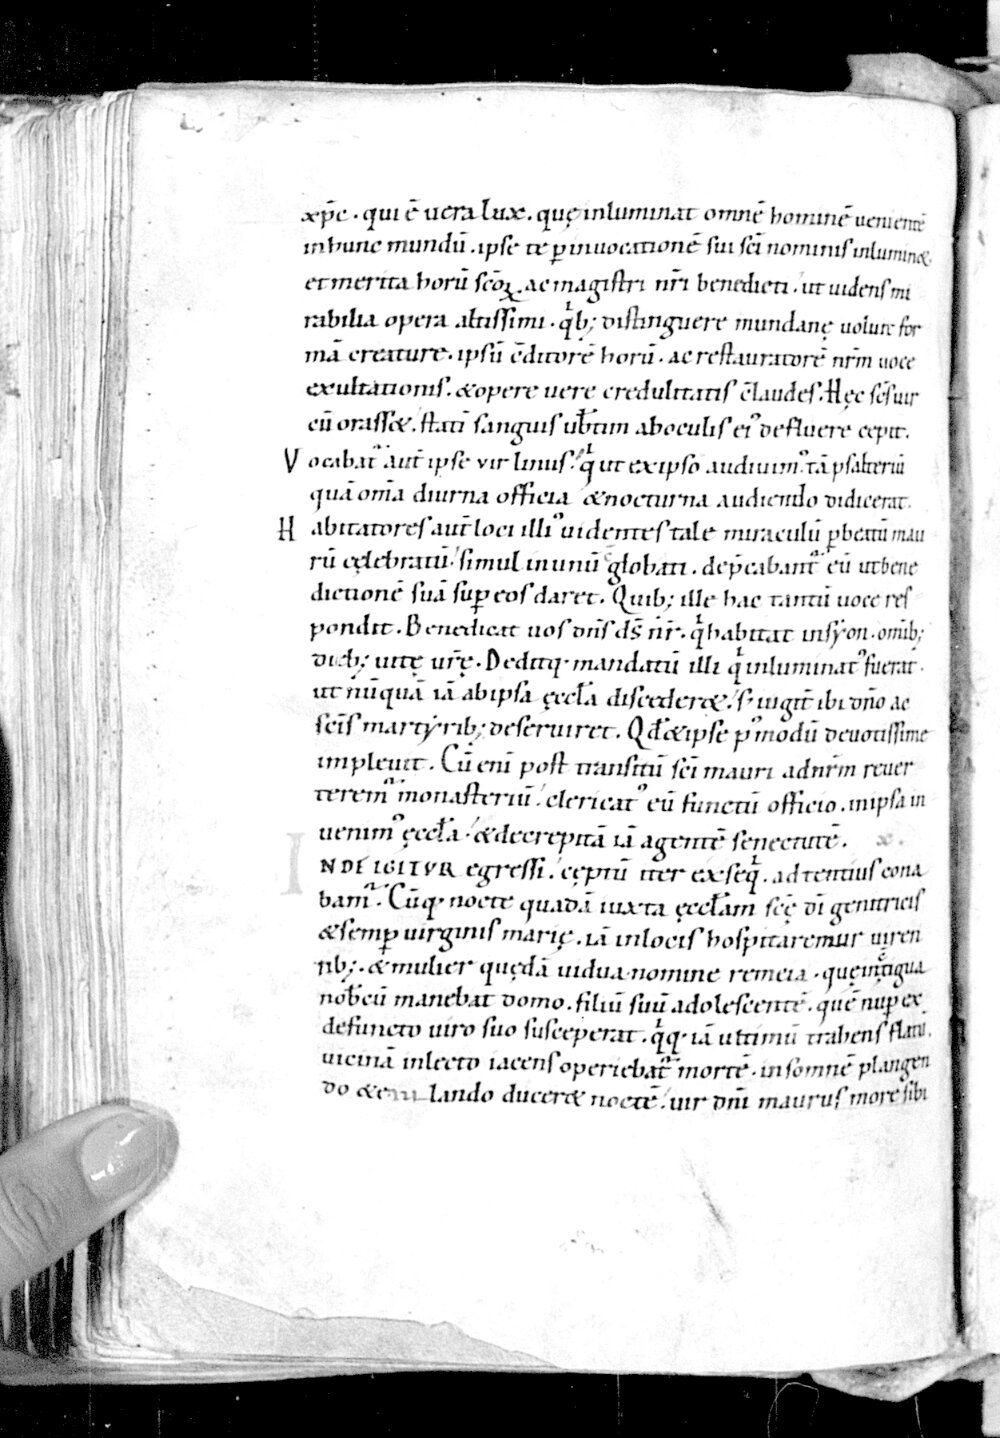 xp̄c · qui ē uera lux . quę inluminat omnē hominē uenientē
in hunc mundū . ipse te p̄ inuocationē sui sc̄i nominis inlumin&.
et merita horū sc̄oꝝ . ac magistri nr̄i benedicti . ut uidens mi
rabilia opera altissimi . qͥb; distinguere mundanę uoluit for
mā creature . ipsū c̄ditorē horū . ac restauratorē nr̄m uoce
exultationis . & opere uere credulitatis c̄laudes . Hęc sc̄s uir
cū orass& . statī sanguis ub̄tim ab oculis eiꝰ defluere cepit .
Vocabat᷑ aut̄ ipse vir linus . qͥ ut ex ipso audiuimꝰ . tā psalteriū
quā om̄a diurna officia & nocturna audiendo didicerat .
Habitatores aut̄ loci illiꝰ uidentes tale miraculū ꝑ beatū mau
rū cęlebratū . simul in unū c̄globati . dep̄cabant᷑ eū ut bene
dictionē suā suꝑ eos daret . Quib; ille hac tantū uoce res
pondit . Benedicat uos dn̄s ds̄ nr̄ . qͥ habitat in syon . om̄ib;
dieb; uitę ur̄ę . Deditq· mandatū illi qͥ inluminatꝰ fuerat .
ut nūquā iā ab ipsa ęccła disceder& . s; iugit̄ ibi dn̄o ac
sc̄is martyrib; deseruiret . Qd̄ & ipse pꝰmodū deuotissime
impleuit . Cū enī post transitū sc̄i mauri ad nr̄m reuer
teremꝰ monasteriū . clericatꝰ eū functū officio . in ipsa in
uenimꝰ ęccła . & decrepitā iā agentē senectutē .
INDE IGITVR egressi . cęptū iter exseqͥ . adtentius cona
bam᷑ . Cūq· nocte quadā iuxta ęccłam sc̄ę dī genitricis
& semꝑ uirginis marię . iā in locis hospitaremur uiren
tib; . & mulier quędā uidua nomine remeia . quę in c̄tigua
nob̄cū manebat domo . filiū suū adolescentē . quē nuꝑ ex
defuncto uiro suo susceperat . qͥq· iā ultimū trahens flatū .
uicinā in lecto iacens operiebat᷑ mortē . in somnē plangen
do & eiulando ducer& noctē . uir dn̄i maurus more sibi